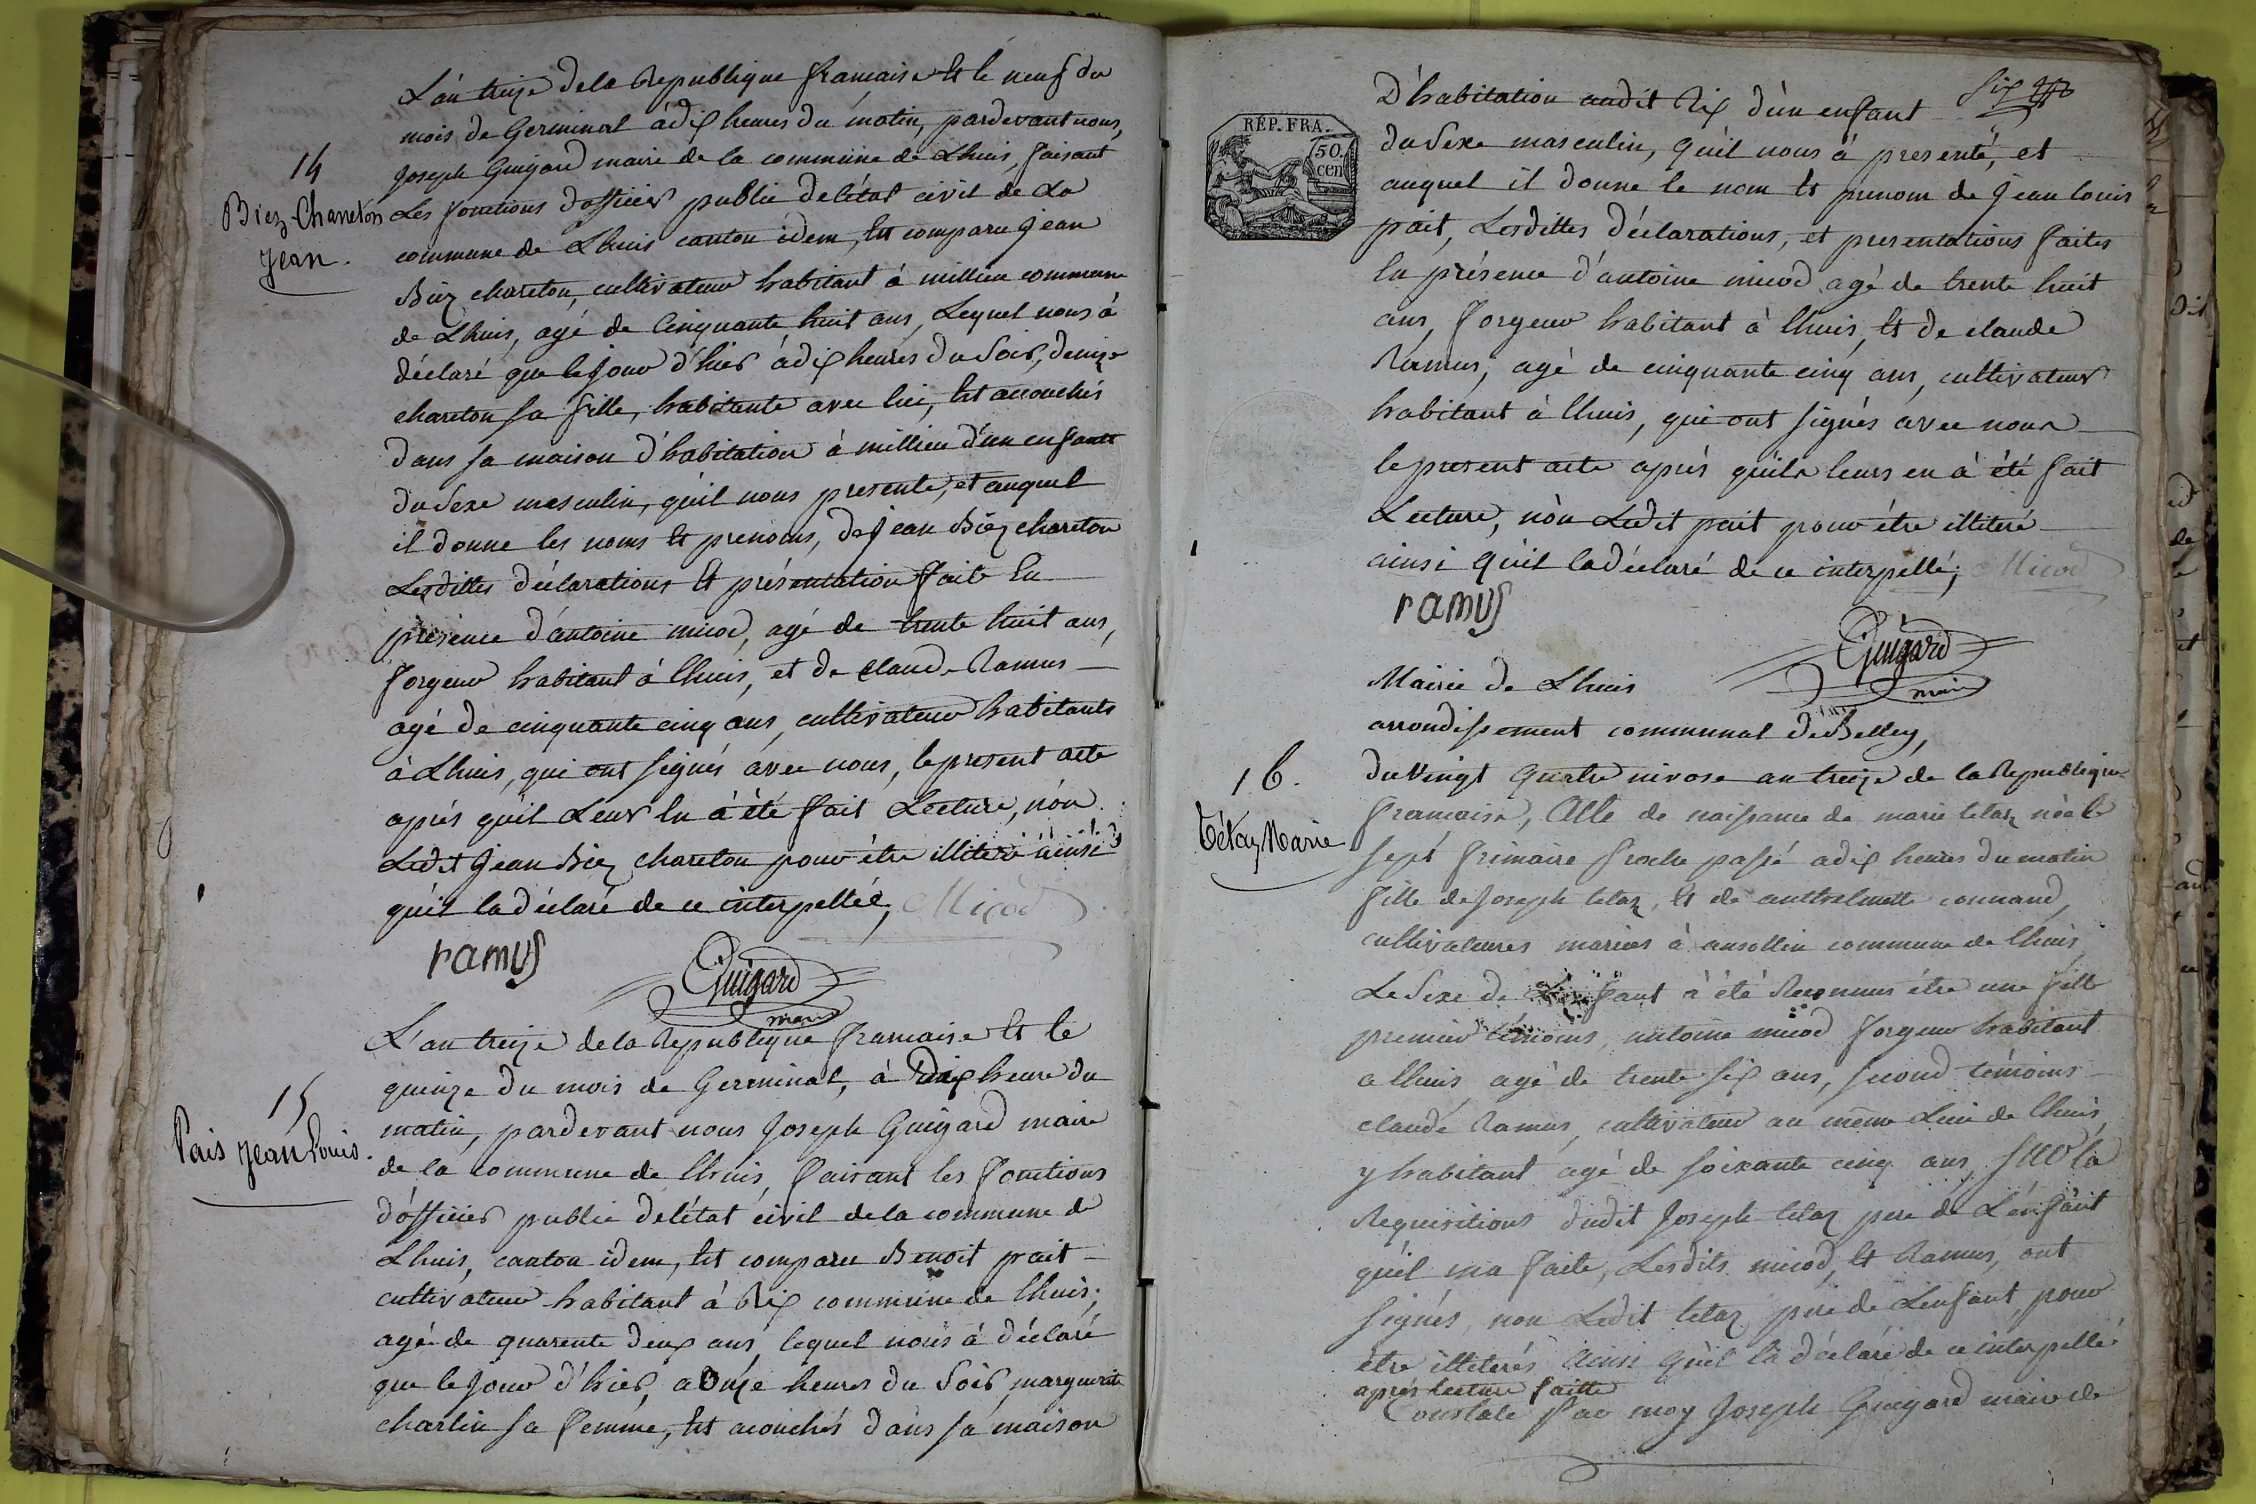 L'an treize de la Republique francaise et le neuf du
mois de Germinal à dix heures du matin, pardevant nous,
Joseph Guigard maire de la commune de Lhuis, faisant
14
Biez-Chareton
Jean.
Les fonctions d'officier public de l'état civil de La
commune de Lhuis canton idem, Est comparu Jean
Biez chareton, cultivateur habitant à millieu commune
de Lhuis, agé de Cinquante huit ans, Lequel nous à
déclaré que le jour d'hier à dix heures du Soir, denize
chareton sa fille, habitante avec lui, Est accouchés
dans sa maison d'habitation à millieu d'un enfant
du Sexe masculin, qu'il nous presente, et auquel
il donne les noms et prenoms, de Jean Biez chareton
Lesdittes déclarations Et présentation faite En
présence d'antoine micod, agé de trente huit ans,
forgeur habitant à lhuis, et de claude Ramus
agé de cinquante cinq ans, cultivateur habitants
à Lhuis, qui ont signés avec nous, le present acte
après qu'il Leur En à été fait Lecture, nón
Ledit Jean Biez chareton pour être illiteré ainsi
qu'il la déclaré de ce interpellée, Micod
ramus
Guigard
maire
L'an treize de la Republique francaise Et le
quinze du mois de Germinal, à dix heure du
15
Pais Jean Louis.
matin, pardevant nous Joseph Guigard maire
de la commune de lhuis, faisant les fonctions
d'officier public de l'état civil de la commune de
Lhuis, canton idem, Est comparu Benoit pait
cultivateur habitant à Rix commune de lhuis,
agé de quarente deux ans, lequel nous à déclaré
que le jour d'hier, a Onze heures du Soir, marguerite
charlin sa femme, Est acouchés dans sa maison
D'habitation audit Rix d'un enfant
Six
REP. FRA.
50.
cen
du Sexe masculin, qu'il nous à presenté, et
auquel il donne le nom Et prenom de Jean louis
pait, Lesdittes déclarations, et presentations faites
En présence d'antoine micod agé de trente huit
ans, forgeur habitant à lhuis, Et de claude
Ramus, agé de cinquante cinq ans, cultivateur
habitant à lhuis, qui ont signés avec nous
le present acte après quils leurs en à été fait
Lecture, nòn Ledit pait pour être illiteré
ainsi qu'il la déclaré de ce interpellé, Micod
ramus
Guigard
maire
Mairie de Lhuis
arrondissement communal de Belley,
16.
Tétaz Marie
du Vingt Quatre nivose an treize de la Republique
francaise, Acte de naissance de marie tetaz née le
sept frimaire proche passé a dix heures du matin
fille de Joseph tetaz, Et de anthelmette connand,
cultivateures mariés à ansollin commune de lhuis,
Le Sexe de L'enfant à été Reconnus être une fille
premier témoins, antoine micod forgeur habitant
a lhuis agé de trente six ans, second témoins
claude Ramus, cultivateur au même Lieu de lhuis,
y habitant agé de soixante cinq ans, sur la
Requisitions dudit Joseph tetaz pere de L'enfant
qu'il ma faite, Lesdits micod, Et Ramus, ont
signés, non Ledit tetaz pere de L'enfant, pour
être illiterés ainsi qu'il la déclaré de ce interpellé
après lecture faitte
Constaté par moy Joseph Guigard maire de